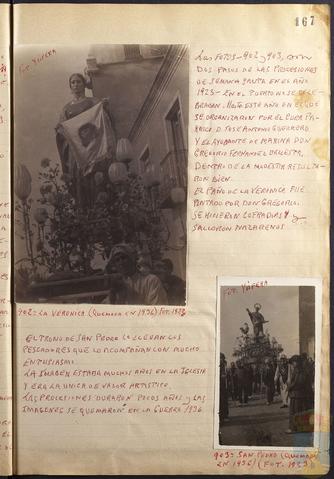 167
Fot. YÚFERA
LAS FOTOS-902 Y 903, SON
DOS PASOS DE LAS PROCESIONES
DE SEMANA SANTA EN EL AÑO
1925- EN EL PUERTO NO SE CELE-
BRABAN. HASTA ESTE AÑO EN EL QUE
SE ORGANIZARON POR EL CURA PA-
RROCO D. JOSE ANTONIO
Y EL AYUDANTE DE MARINA DON
GREGORIO FERNANDEZ
DENTRO DE LA MODESTIA RESULTA-
RON BIEN.
EL PAÑO DE LA VERONICA FUE
PINTADO POR DON GREGORIO.
SE HICIERON COFRADIAS Y
SALIERON NAZARENOS
902- LA VERONICA (QUEMADA EN 1936) FOT.
EL TRONO DE SAN PEDRO LO LLEVAN LOS
PESCADORES QUE LO ACOMPAÑAN CON MUCHO
ENTUSIASMO.
LA IMAGEN ESTABA MUCHOS AÑOS EN LA IGLESIA
Y ERA LA UNICA DE VALOR ARTISTICO.
LAS PROCESIONES DURARON POCOS AÑOS Y LAS
IMAGENES SE QUEMARON EN LA GUERRA 1936
Fot. YÚFERA
903- SAN PEDRO (QUEMADO
EN 1936) (FOT.